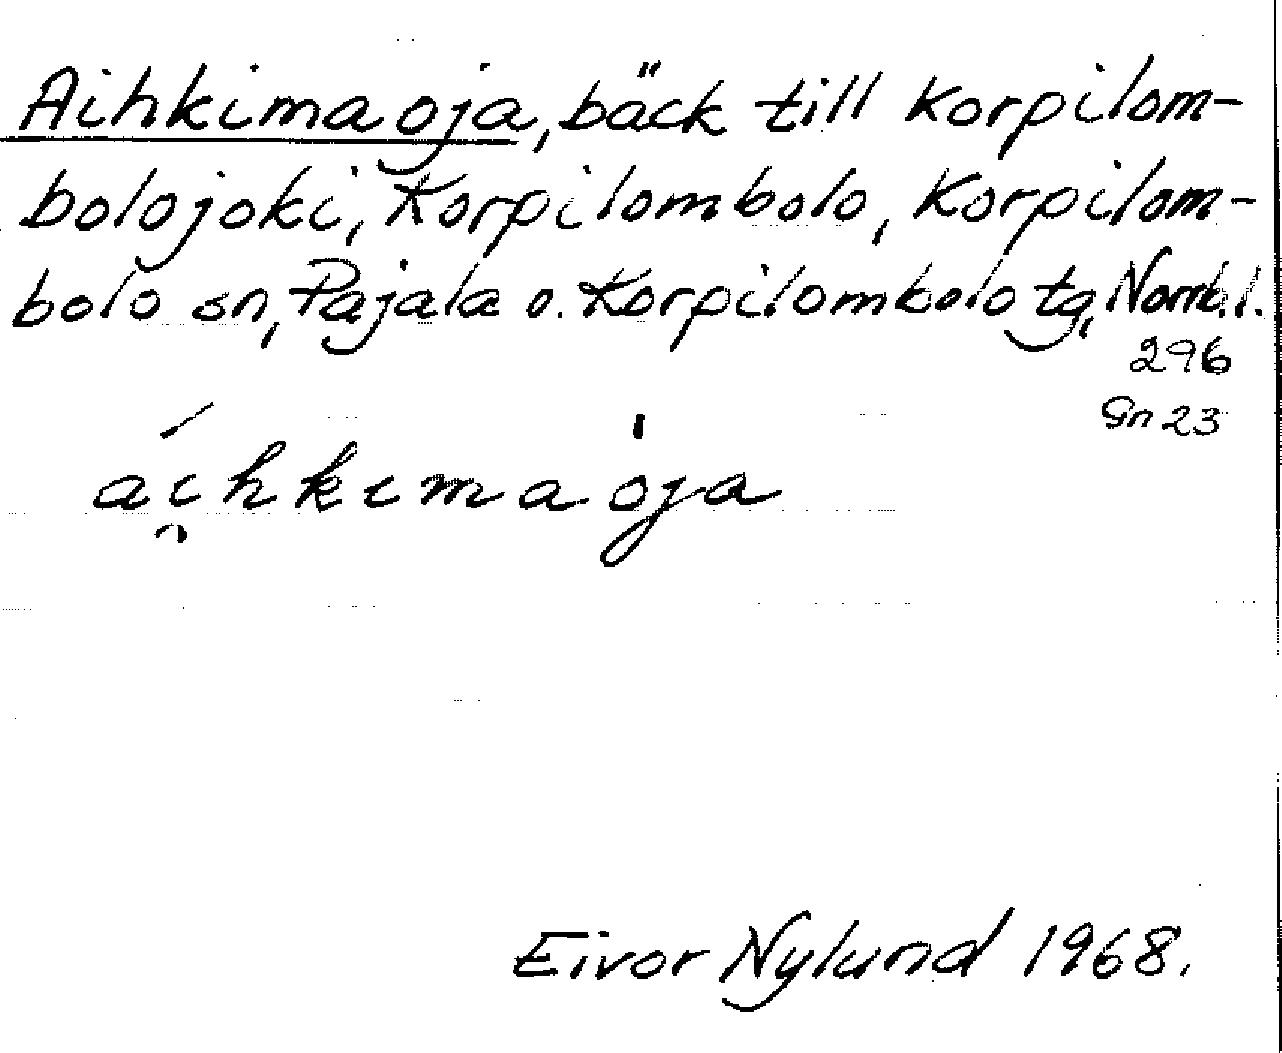 Aihkimaoja, bäck till Korpilom-
bolojoki, Korpilombolo, Korpilom-
bolo sn, Pajala o. Korpilombolo tg, Norrb. l.
296
Gn 23
aihkimaoja
Eivor Nylund 1968.